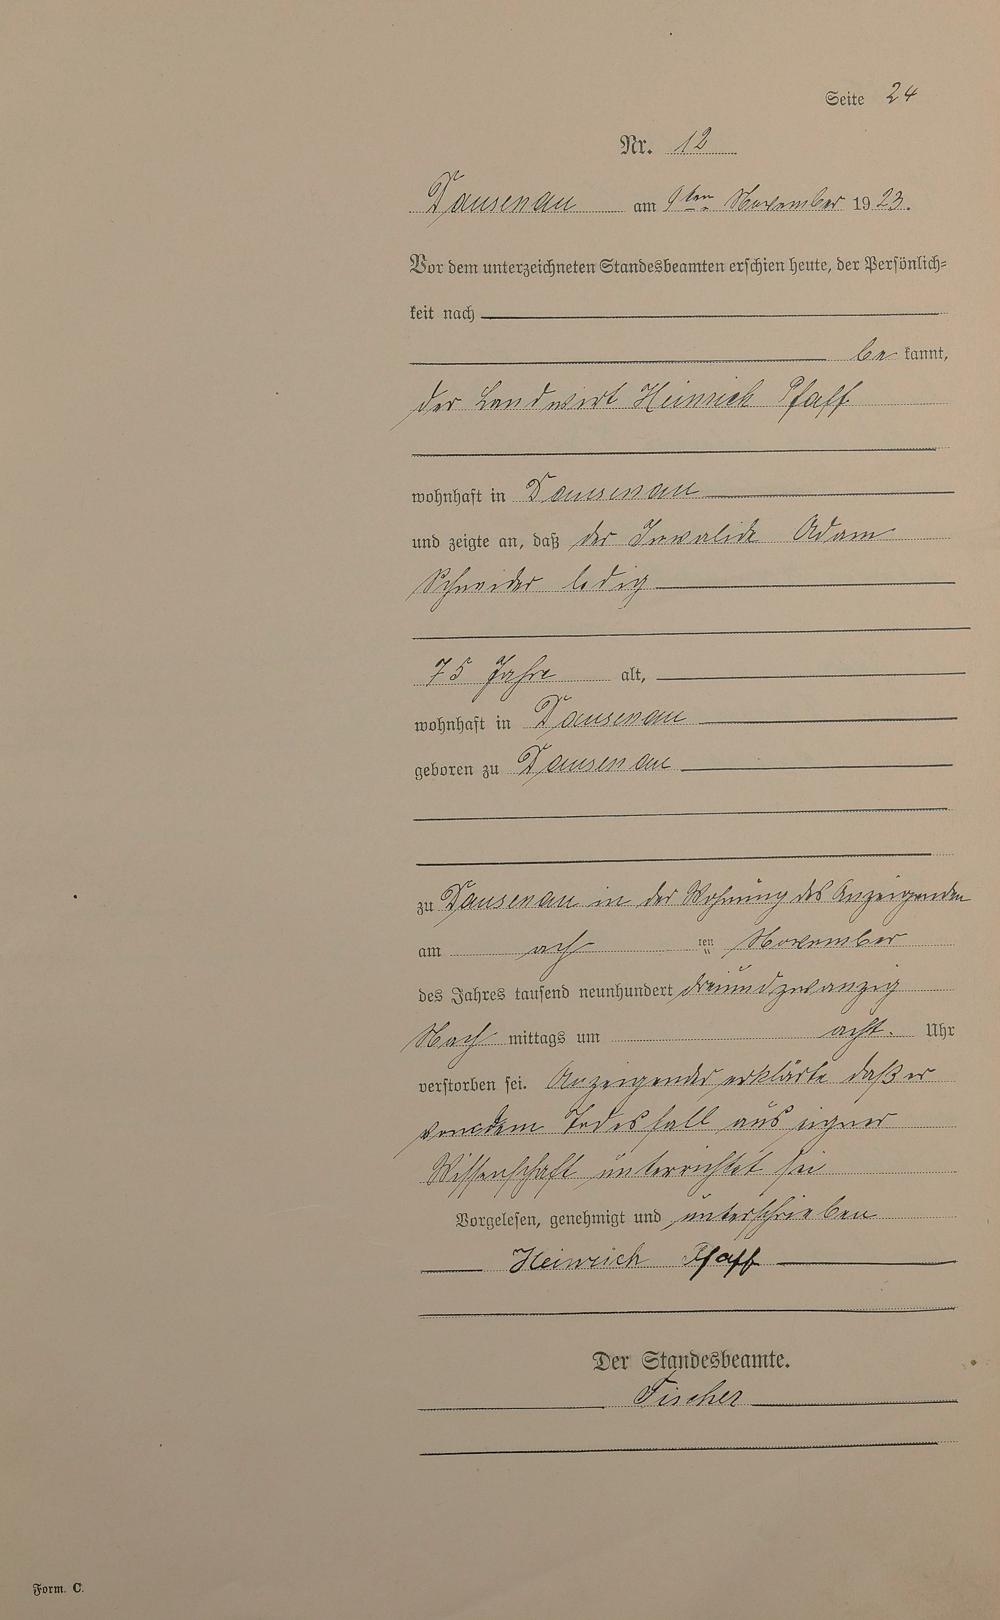 Seite 24
Nr. 12
Dausenau am 9ten November 1923.
Vor dem unterzeichneten Standesbeamten erschien heute, der Persönlich=
keit nach
be kannt,
der Landwirt Heinrich Pfaff
wohnhaft in Dausenau
und zeigte an, daß der Invalide Adam
Schneider ledig
75 Jahre alt,
wohnhaft in Dausenau
geboren zu Dausenau
zu Dausenau in der Wohnung des Anzeigenden
am ach ten November
des Jahres tausend neunhundert dreiundzwanzig
Nach mittags um acht. Uhr
verstorben sei. Anzeigender erklärte daß er
von dem Todesfall aus eigner
Wissenschaft unterrichtet sei
Vorgelesen, genehmigt und unterschrieben
Heinrich Pfaff
Der Standesbeamte.
Fischer
Form. C.